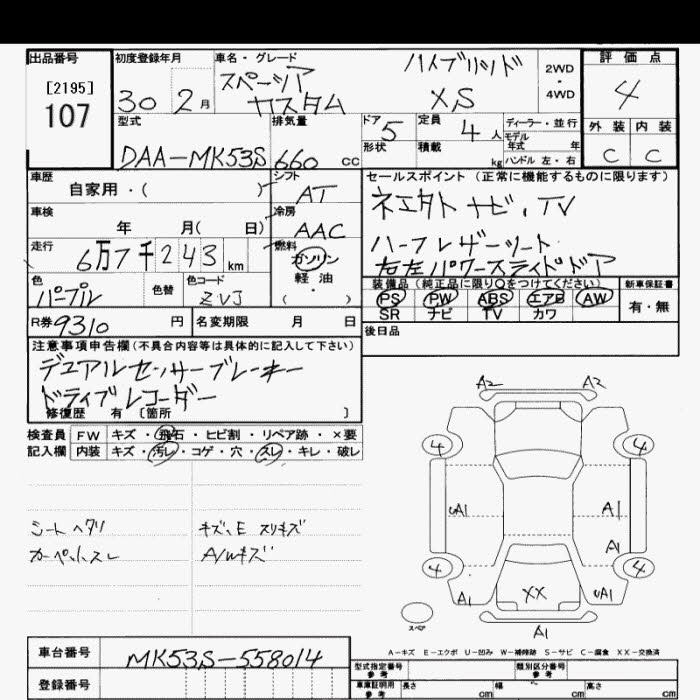 出品番号 初度登録年月 車名・グレード 評価点
[2195]
107
30 2月 スペーシア カスタム ハイブリッド XS 2WD・4WD 4
型式 排気量 ドア 5 定員 4人 ディーラー・並行 外装 内装
モデル年式 年
DAA-MK53S 660cc 形状 積載 kg ハンドル 左・右 C C
車歴 シフト セールスポイント (正常に機能するものに限ります)
自家用・( ) AT
車検 冷房 ナビ、TV
年 月( 日) AAC ハーフレザーシート
走行 燃料 右左パワースライドドア
6万7千243km ガソリン
軽油・( )
色 色替 色コード 装備品(純正品に限り○をつけてください) 新車保証書
パープル ZVJ PS PW ABS エアB AW 有・無
SR ナビ TV カワ
R券 9310円 名変期限 月 日 後日品
注意事項申告欄(不具合内容等は具体的に記入して下さい)
デュアルセンサーブレーキー
ドライブレコーダー
修復歴 有 〔箇所 〕
検査員 FW キズ・飛石・ヒビ割・リペア跡・×要
記入欄 内装 キズ・汚レ・コゲ・穴・スレ・キレ・破レ
A2 A2
4 4
A1 A1
A1
シートヘタリ キズ、E スリキズ
カーペットスレ A/Wキズ
4 4
A1 XX A1
スペア
A1
A-キズ E-エクボ U-凹み W-補修跡 S-サビ C-腐食 XX-交換済
車台番号 MK53S-558014
型式指定番号 参考 類別区分番号 参考
登録番号 車庫証明用 参考 長さ cm 幅 cm 高さ cm